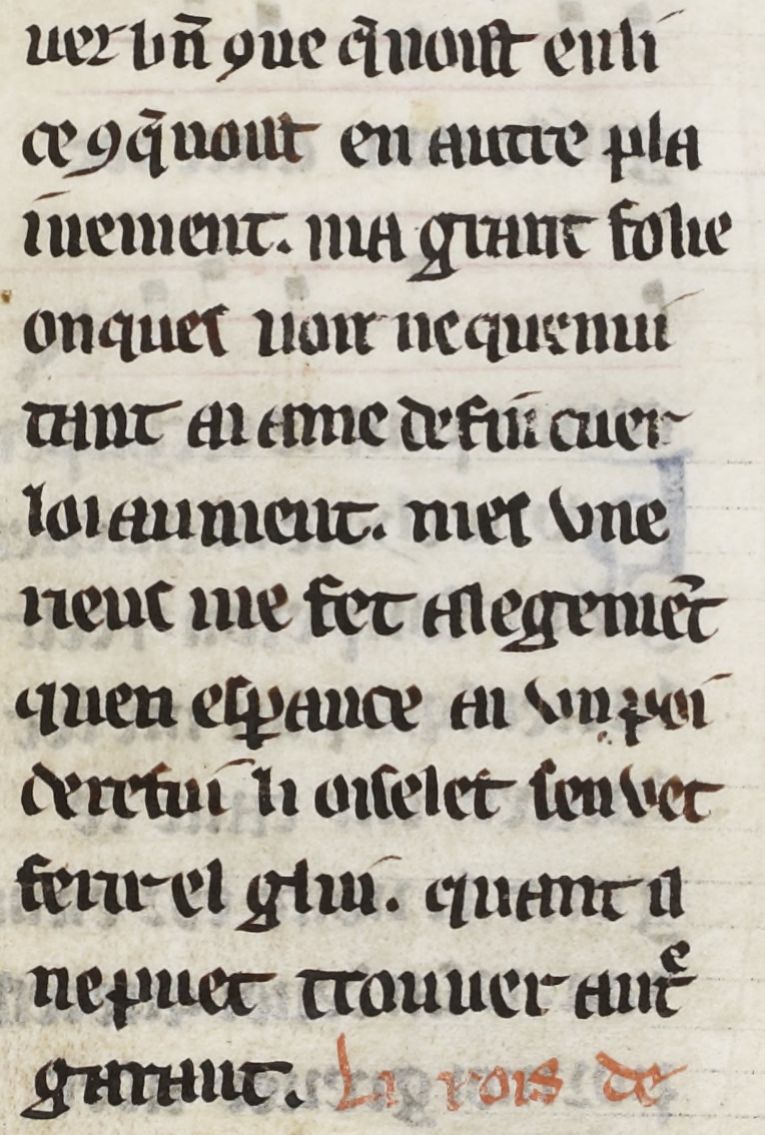 uer vn̄ ꝯue q̄noist en li
ce ꝯq̄nout en autre pla
inement. ma grant folie
onques uoir ne quenui
tant ai ame de fin cuer
loiaument. mes vne
riens me fet alegemēt
quen esꝑance ai vn poi
de refui li oiselet sen vet
ferir el glui. quant il
ne puet trouuer autͤ
garant. Li rois de